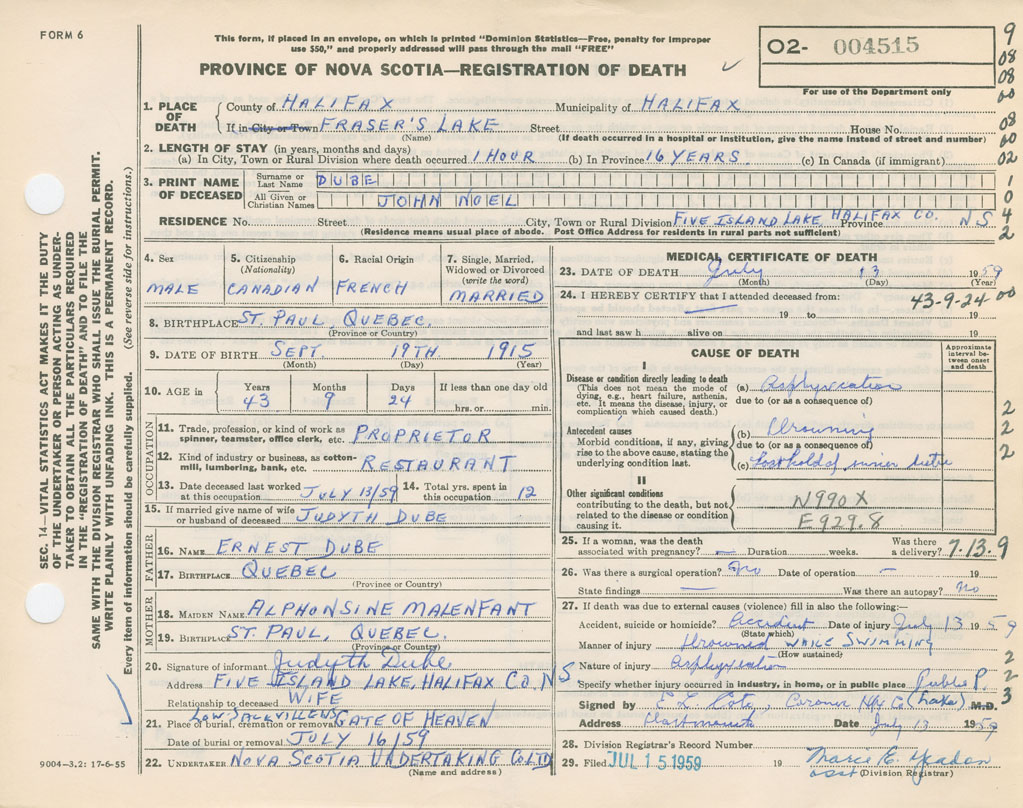 FORM 6
This form, if placed in an envelope, on which is printed "Dominion Statistics—Free, penalty for improper
use $50," and properly addressed will pass through the mail "FREE"
PROVINCE OF NOVA SCOTIA—REGISTRATION OF DEATH
O2- 004515
For use of the Department only
9
08
08
00
08
00
02
1
0
4
2
SEC. 14—VITAL STATISTICS ACT MAKES IT THE DUTY
OF THE UNDERTAKER OR PERSON ACTING AS UNDER-
TAKER TO OBTAIN ALL THE PARTICULARS REQUIRED
IN THE "REGISTRATION OF DEATH" AND TO FILE THE
SAME WITH THE DIVISION REGISTRAR WHO SHALL ISSUE THE BURIAL PERMIT.
WRITE PLAINLY WITH UNFADING INK. THIS IS A PERMANENT RECORD.
Every item of information should be carefully supplied. (See reverse side for instructions.)
1. PLACE OF DEATH County of HALIFAX Municipality of HALIFAX
If in City or Town FRASER'S LAKE Street House No.
(Name) (If death occurred in a hospital or institution, give the name instead of street and number)
2. LENGTH OF STAY (in years, months and days)
(a) In City, Town or Rural Division where death occurred 1 HOUR (b) In Province 16 YEARS (c) In Canada (if immigrant)
3. PRINT NAME OF DECEASED Surname or Last Name DUBE
All Given or Christian Names JOHN NOEL
RESIDENCE No. Street City, Town or Rural Division FIVE ISLAND LAKE, HALIFAX CO. Province N.S.
(Residence means usual place of abode. Post Office Address for residents in rural parts not sufficient)
4. Sex MALE
5. Citizenship (Nationality) CANADIAN
6. Racial Origin FRENCH
7. Single, Married, Widowed or Divorced (write the word) MARRIED
8. BIRTHPLACE ST. PAUL, QUEBEC.
(Province or Country)
9. DATE OF BIRTH SEPT. 19TH. 1915
(Month) (Day) (Year)
10. AGE in Years 43 Months 9 Days 24 If less than one day old hrs. or min.
OCCUPATION
11. Trade, profession, or kind of work as spinner, teamster, office clerk, etc. PROPRIETOR
12. Kind of industry or business, as cotton-mill, lumbering, bank, etc. RESTAURANT
13. Date deceased last worked at this occupation JULY 13/59 14. Total yrs. spent in this occupation 12
15. If married give name of wife or husband of deceased JUDYTH DUBE
FATHER
16. NAME ERNEST DUBE
17. BIRTHPLACE QUEBEC
(Province or Country)
MOTHER
18. MAIDEN NAME ALPHONSINE MALENFANT
19. BIRTHPLACE ST. PAUL, QUEBEC.
(Province or Country)
20. Signature of informant Judyth Dube
Address FIVE ISLAND LAKE, HALIFAX CO. N.S.
Relationship to deceased WIFE
21. Place of burial, cremation or removal LOW. SACKVILLE N.S. GATE OF HEAVEN
Date of burial or removal JULY 16/59
22. UNDERTAKER NOVA SCOTIA UNDERTAKING CO LTD
(Name and address)
9004—3,2: 17-6-55
MEDICAL CERTIFICATE OF DEATH
23. DATE OF DEATH July 13 1959
(Month) (Day) (Year)
24. I HEREBY CERTIFY that I attended deceased from: 43-9-24 00
19 to 19
and last saw h alive on 19
CAUSE OF DEATH
Approximate interval between onset and death
I
Disease or condition directly leading to death (a) Asphyxiation
(This does not mean the mode of dying, e.g., heart failure, asthenia, etc. It means the disease, injury, or complication which caused death.) due to (or as a consequence of)
Antecedent causes (b) Drowning
Morbid conditions, if any, giving rise to the above cause, stating the underlying condition last. due to (or as a consequence of)
(c) Lost hold of inner tube
2
2
2
II
Other significant conditions contributing to the death, but not related to the disease or condition causing it.
N990X
E929.8
25. If a woman, was the death associated with pregnancy? — Duration weeks. Was there a delivery? 7.13.9
26. Was there a surgical operation? No Date of operation — 19
State findings — Was there an autopsy? No
27. If death was due to external causes (violence) fill in also the following:—
Accident, suicide or homicide? Accident Date of injury July 13 1959
(State which)
Manner of injury Drowned WHILE SWIMMING
(How sustained)
Nature of injury Asphyxiation
Specify whether injury occurred in industry, in home, or in public place Public P.
(Lake)
2
2
3
Signed by Coroner M.D.
Address Dartmouth Date July 13 1959
28. Division Registrar's Record Number
29. Filed JUL 15 1959 19 Marce E. Yeadon
asst (Division Registrar)